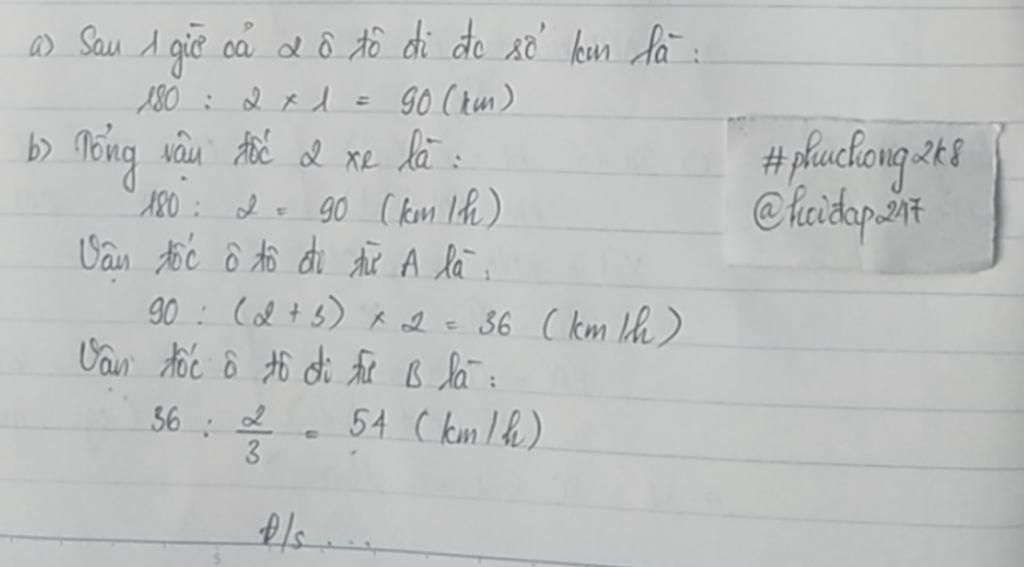 a) Sau 1 giờ cả 2 ô tô đi đc số km là:
180 : 2 x 1 = 90 (km)
b) Tổng vận tốc 2 xe là:
180 : 2 = 90 (km/h)
Vận tốc ô tô đi từ A là:
90 : (2 + 3) x 2 = 36 (km/h)
Vận tốc ô tô đi từ B là:
36 : 2/3 = 54 (km/h)
Đ/s ...
#phuchong2k8
@hoidap247